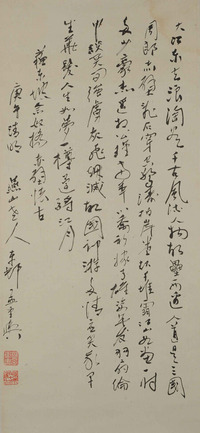 大江東去浪淘盡千古風流人物故壘西邊人道是三國
周郎赤壁亂石穿空驚濤拍岸捲起千堆雪江山如畫一時
多少豪傑遙想公瑾當年小喬初嫁了雄姿英發羽扇綸
巾談笑間強虜灰飛煙滅故國神游多情應笑我早
生華髮人生如夢一樽還酹江月
蘇東坡念奴嬌赤壁懷古
庚午清明 燕山